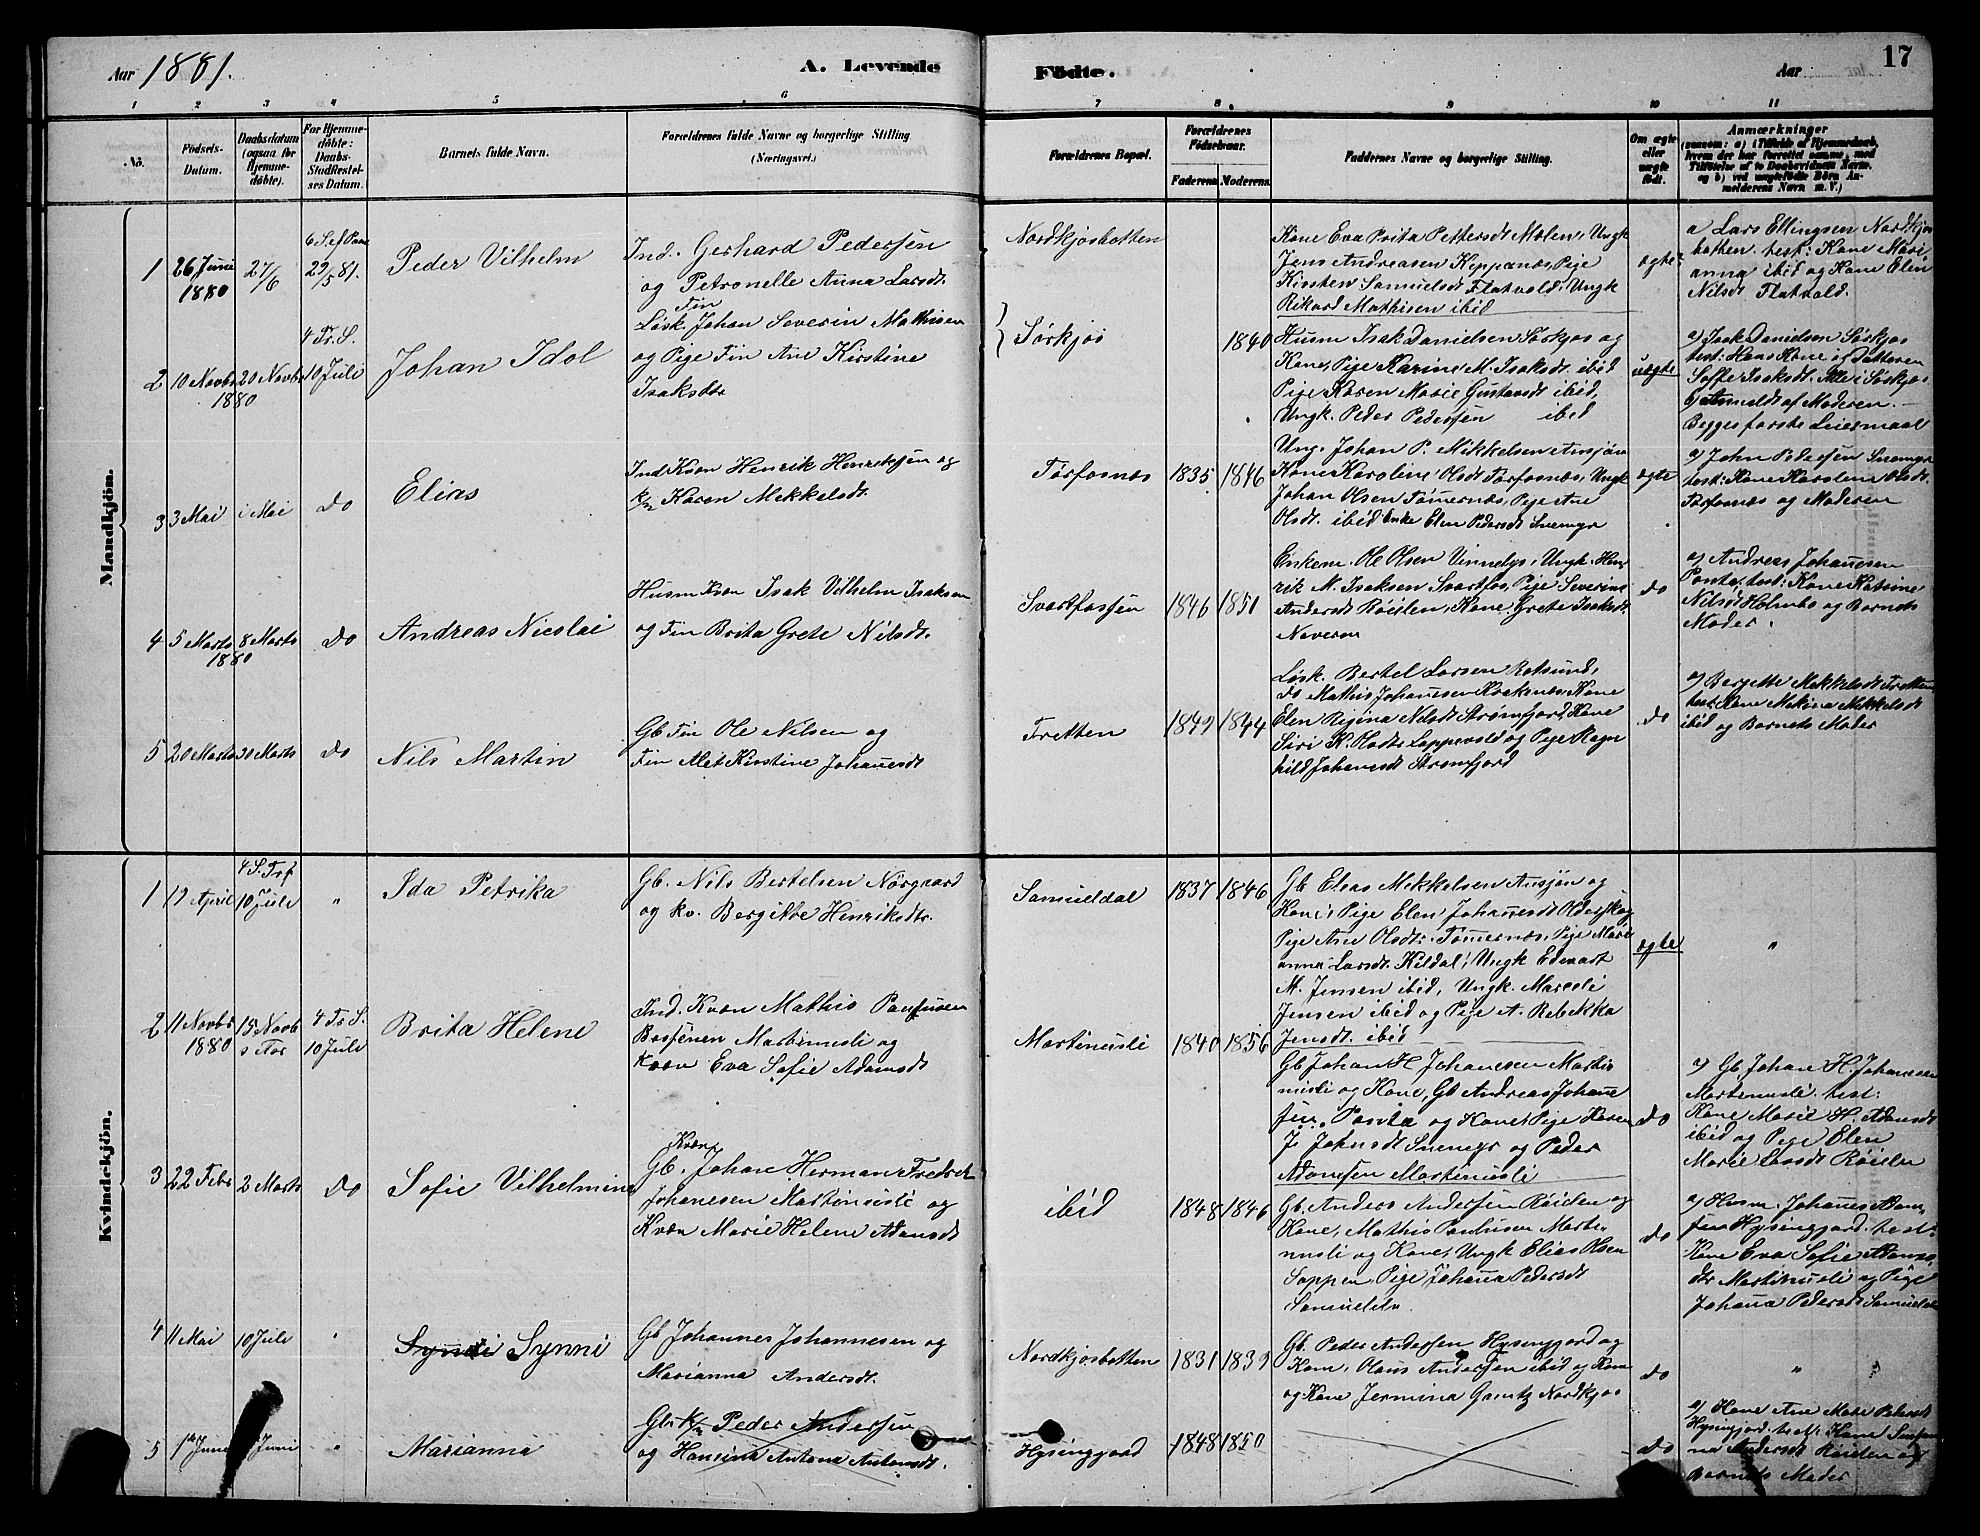 Aar 1881.
A. Levende Födte.
Aar
17
1 2 3 4 5 6 7 8. 9 10 11
No.
Födsels-
Datum.
Daabsdatum
(ogsaa for
Hjemme-
döbte).
For Hjemme-
döbte:
Daabs-
Stadfæstel-
ses Datum.
Barnets fulde Navn.
Forældrenes fulde Navne og borgerlige Stilling
(Næringsvei.)
Forældrenes Bopæl.
Forældrenes
Födselsaar.
Faderens. Moderens.
Faddernes Navne og borgerlige Stilling.
Om ægte
eller
uægte
födt.
Anmærkninger
(saasom: a) i Tilfælde af Hjemmedaab,
hvem der har forrettet samme, med
Tilföielse af to Daabsvidners Navne,
og b) ved uægtefödte Börn An-
melderens Navn m. V.)
Mandkjön.
1
26 Juni
1880
27/6
29/5 81.
Peder Vilhelm
Ind. Gerhard Pedersen
og Petronelle Anna Larsdt.
Nordkjosbotten
Kone Eva Brita Pettersdt Molen, Ungk
Jens Andreasen Keppanæs, Pige
Kirsten Samuelsdt Flatvold, Ungk
Rikard Mathisen ibid
ægte
a Lars Ellingsen Nordkjos
botten. test: Kone Mari,
anna ibid og Kone Elen
Nilsdt Flatvold.
2
10 Novbr
1880
20 Novbr
4 Tr. S.
10 Juli
Johan Idol
Fin
Løsk. Johan Severin Mathisen
og Pige Fin Ane Kirstine
Isaksdtr
Sørkjos
1840
Husm Isak Danielsen Sørkjos og
Kone, Pige Karine M. Isaksdt. ibid
Pige Karen Marie Gustavsdt ibid,
Ungk. Peder Pedersen ibid
uægte
a) Isak Danielsen Sørkjos
test: Hans Kone og Datteren
Soffe Isaksdt. Alle i Sørkjos.
b) Anmeldt af Moderen.
Begges første Leiermaal
3
3 Mai
Mai
do
Elias
Ind Kvæn Henrik Henriksen og
k/n Karen Mikkelsdt.
Tørfosnæs
1835
1846
Ung. Johan P. Mikkelsen Ansjøn
Kone Karoline Olsdt Tørfosnæs, Ungk
Johan Olsen Tømernæs, Pige Ane
Olsdt. ibid Enke Elen Pedersdt Snemyr
ægte
a) John Pedersen Snemyr
test: Kone Karoline Olsdt.
Tørfosnæs og Moderen
4
5 Marts
1880
8 Marts
do
Andreas Nicolai
Husm Kvæn Isak Vilhelm Isaksen
og Fin Brita Grete Nilsdt.
Svartfossen
1846
1851
Enkem. Ole Olsen Vinnelys, Ungk. Hen
rik M. Isaksen Svartfos, Pige Severine
Andersdt Røielen, Kone Grete Isaksdt
Naveren
do
a) Andreas Johannesen
Ponta, test: Kone Katrine
Nilsdt Holmbo og Barnets
Moder.
5
20 Marts
30 Marts
do
Nils Martin
Gb Fin Ole Nilsen og
Fin Met Kirstine Johannesdt
Fretten
1849
1844
Løsk. Bertel Larsen Rotsund,
do Mathis Johannesen Kræknæs, Kone
Elen Regina Nilsdt Strømfjord, Kone
Siri K. Olsdt Lappevold og Pige Ragn
hild Johanesdt Strømfjord
do
a) Bergitte Mikkelsdt Fretten
test: Kone Mekina Mikkelsdt
ibid og Barnets Moder
Kvindekjön.
1
17 April
4 S. Tr
10 Juli
"
Ida Petrika
Gb. Nils Bertelsen Nørgaard
og kv. Bergitte Henriksdtr.
Samueldal
1837
1846
Gb Elias Mikkelsen Ansjøn og
Kone, Pige Elen Johannesdt Olderskog
Pige Ane Olsdt. Tømernæs, Pige Mari
anna Larsdt. Kildal, Ungk Edevart
M. Jensen ibid, Ungk. Mareli
Jensen ibid og Pige A. Rebekka
Jensdt. ibid
ægte
"
2
11 Novbr
1880
15 Novb
4 Tr S.
10 Juli
Brita Helene
Ind. Kvæn Mathis Paulusen
Martinusli og
Kvæn Eva Sofie Adamsdt
Martinusli
1840
1856
Gb Johan H Johanesen Marti
nusli og Kone, Gb Andreas Johane
sen, Ponta og Kone, Pige Karen
J. Johnsdt Snemyr og Peder
Adamsen Martinusli
do
a) Gb Johan H. Johanesen
Martinusli test:
Kone Marie H. Adamsdt
ibid og Pige Elen
Marie Larsdt Røielen
3
22 Febr
2 Marts
do
Sofie Vilhelmine
Kvæn
Gb. Johan Herman Fredrek
Johanesen Martinusli og
Kvæn Marie Helene Adamsdt
ibid
1848
1846
Gb. Anders Andersen Røielen og
Kone, Mathis Paulusen Marti-
nusli og Kone, Ungk Elias Olsen
Sappen, Pige Johanna Pedersdt
Samuelsdn.
do
a) Husm. Johannes Adam-
sen Hysinggjord. test:
Kone Eva Sofie Adams
dtr Martinusli og Pige
Johanna Pedersdt Samuelsd
4
11 Mai
10 Juli
"
Synni
Gb Johannes Johannesen og
Marianna Andersdt.
Nordkjosbotten
1831
1839
Gb. Peder Andersen Hysinggjord og
Kone, Olaus Andersen ibid og Kone
og Kone Jermina Gamtz Nordkjos
do
"
5
1ste Juni
Juni
"
Marianna
Gb. k/n Peder Andersen
og Hansina Antona Antonsdt.
Hysinggjord
1848
1850
do
a) Kone Ane Mare Pedersdt
Hysingjord. test: Kone
na Andersdt Røielen og
Barnets Moder